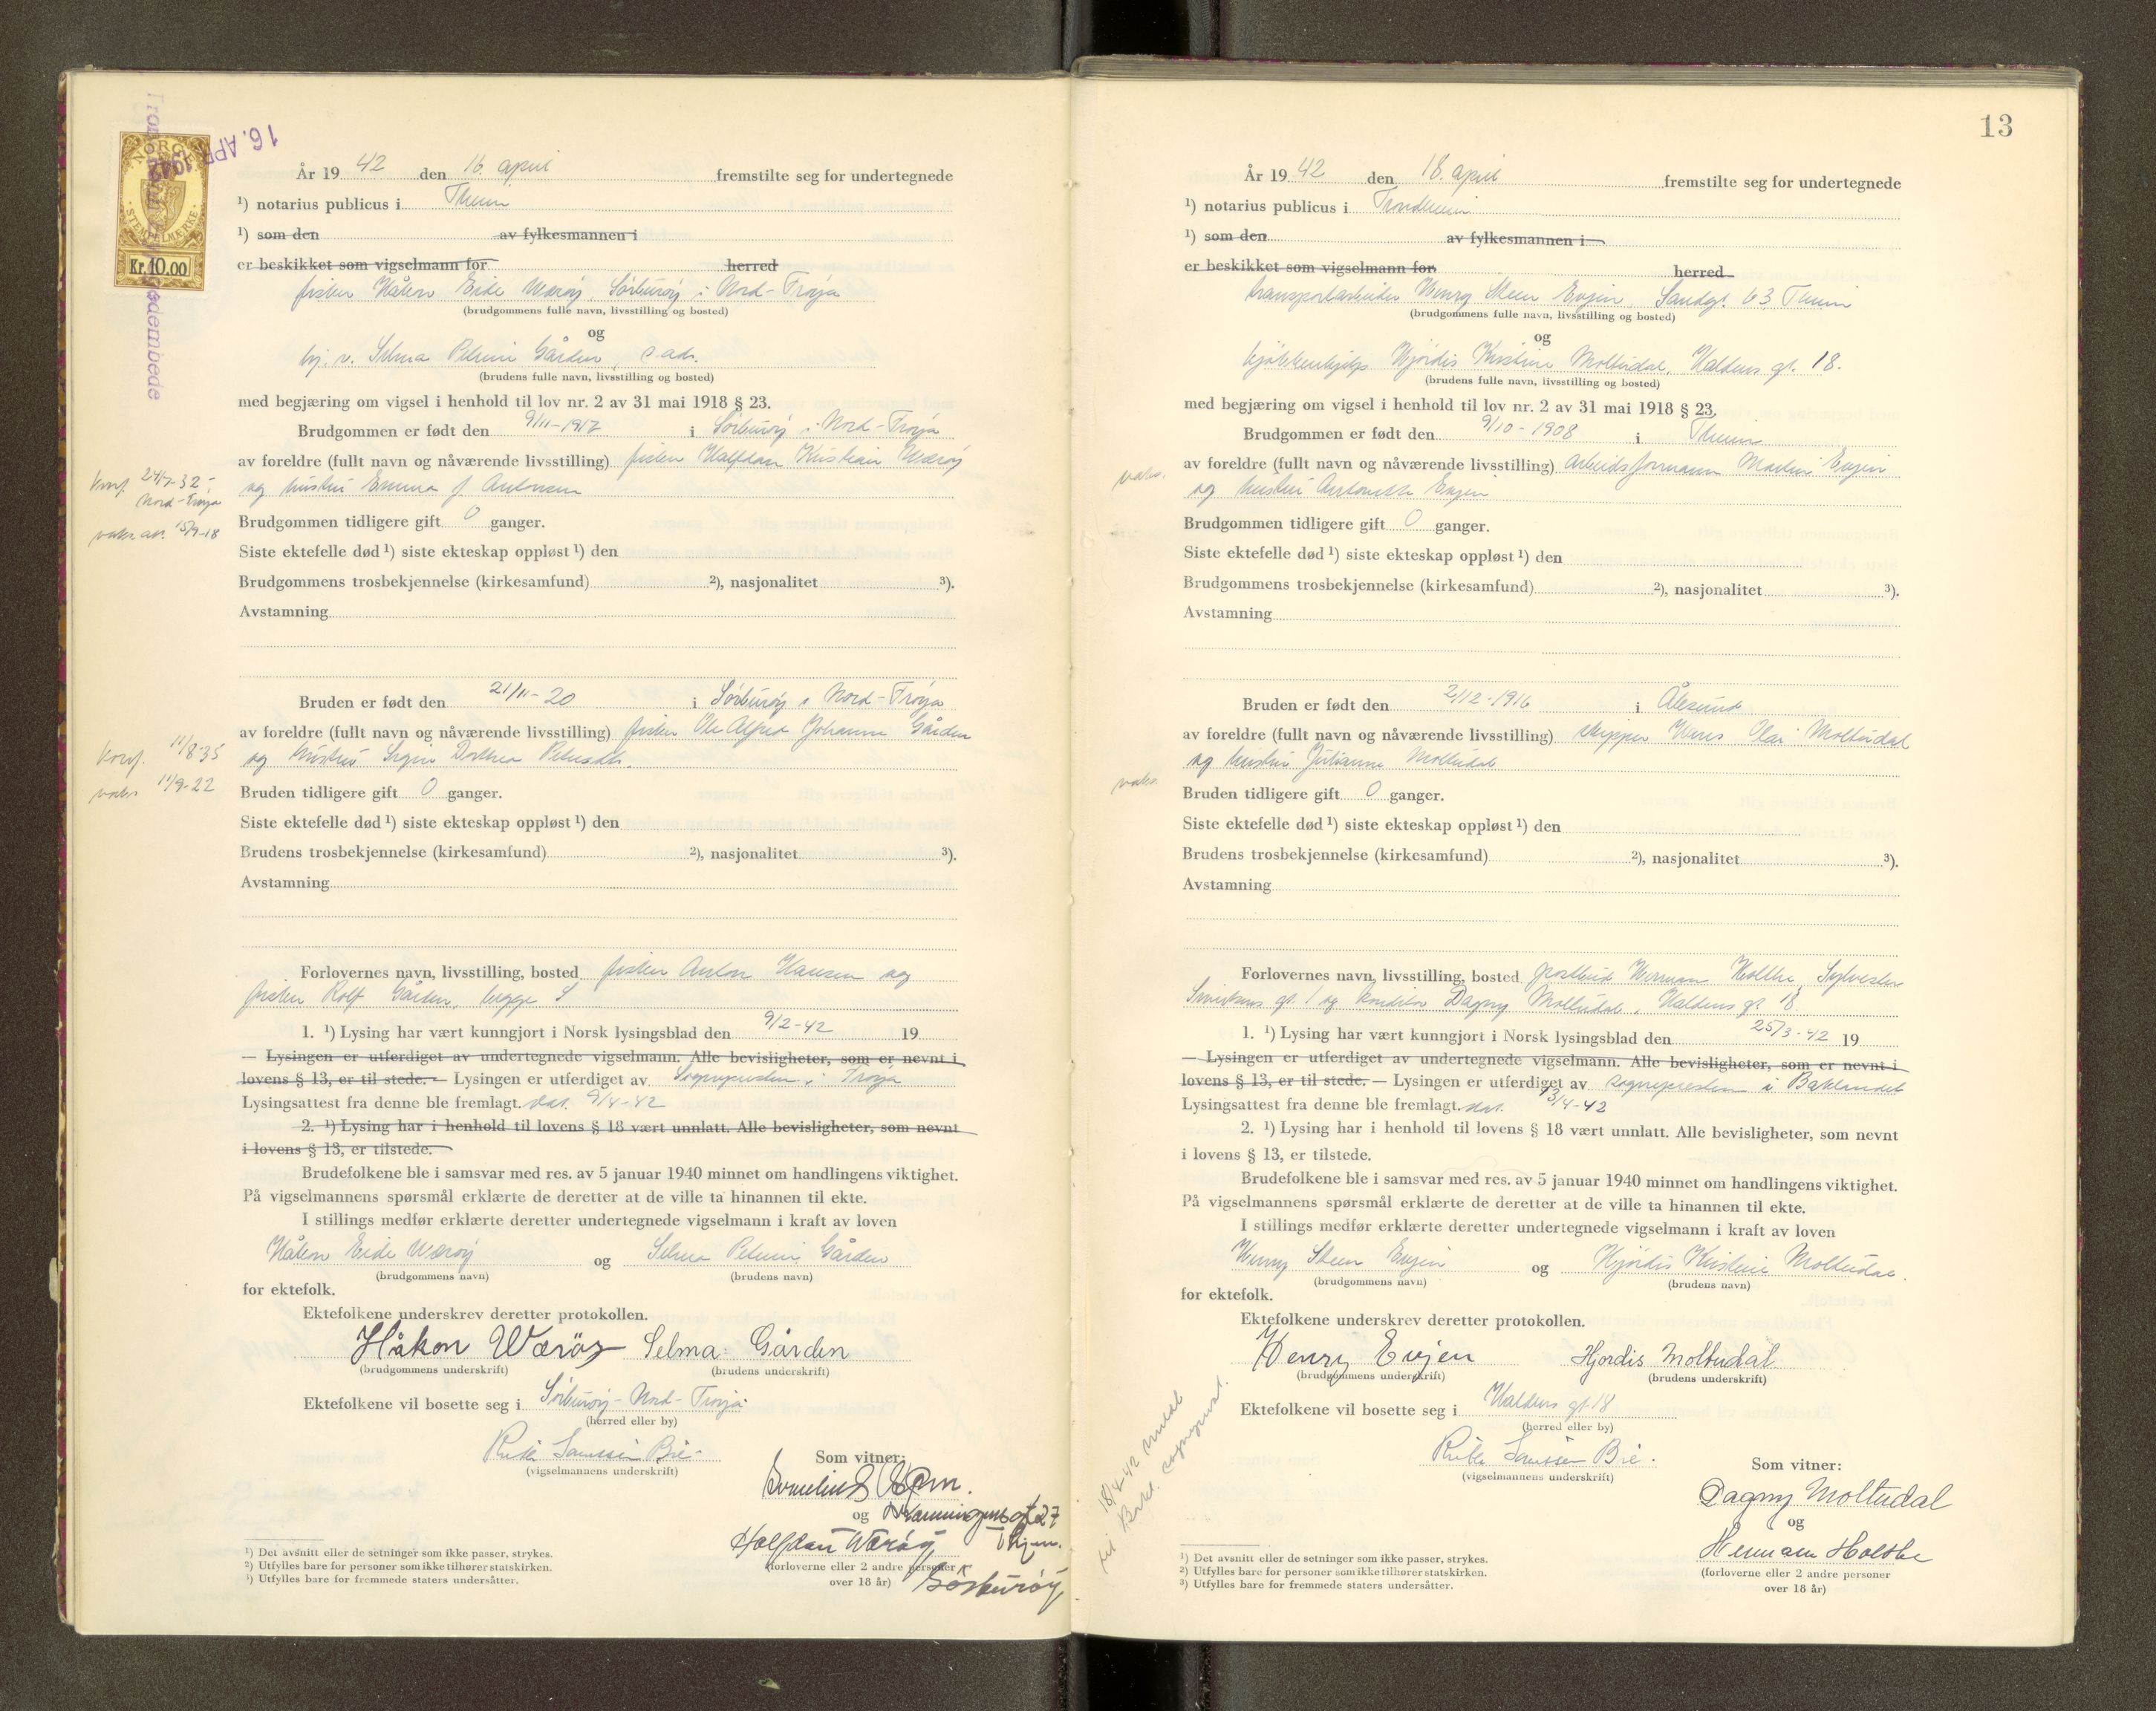 16. APR. 1942
NORGE
STEMPELMERKE
Kr. 10.00
År 19 42 den 16. april fremstilte seg for undertegnede
¹) notarius publicus i Thein
¹) som den av fylkesmannen i
er beskikket som vigselmann for herred
fisker Håkon Eide Værøy, Sørburøy i Nord-Frøya
(brudgommens fulle navn, livsstilling og bosted)
og
hj. v. Selma Petrine Gården, s. adr.
(brudens fulle navn, livsstilling og bosted)
med begjæring om vigsel i henhold til lov nr. 2 av 31 mai 1918 § 23.
Brudgommen er født den 9/11-1917 i Sørburøy i Nord-Frøya
av foreldre (fullt navn og nåværende livsstilling) fisker Halfdan Kristian Værøy
og hustru Emma f. Antonsen
konf. 24/7-32 -
Nord-Frøya
vaks. av. 15/9-18
Brudgommen tidligere gift 0 ganger.
Siste ektefelle død ¹) siste ekteskap oppløst ¹) den
Brudgommens trosbekjennelse (kirkesamfund) ²), nasjonalitet ³).
Avstamning
Bruden er født den 21/11-20 i Sørburøy i Nord-Frøya
av foreldre (fullt navn og nåværende livsstilling) fisker Ole Alfred Johannes Gården
og hustru Dorthea
konf. 11/8-35
vaks 11/9-22
Bruden tidligere gift 0 ganger.
Siste ektefelle død ¹) siste ekteskap oppløst ¹) den
Brudens trosbekjennelse (kirkesamfund) ²), nasjonalitet ³).
Avstamning
Forlovernes navn, livsstilling, bosted fisker Anton Hansen og
fisker Rolf Gården, begge S
1. ¹) Lysing har vært kunngjort i Norsk lysingsblad den 9/2-42 19
— Lysingen er utferdiget av undertegnede vigselmann. Alle bevisligheter, som er nevnt i
lovens § 13, er til stede. — Lysingen er utferdiget av Sognepresten i Frøya
Lysingsattest fra denne ble fremlagt. dat. 9/4-42
2. ¹) Lysing har i henhold til lovens § 18 vært unnlatt. Alle bevisligheter, som nevnt
i lovens § 13, er tilstede.
Brudefolkene ble i samsvar med res. av 5 januar 1940 minnet om handlingens viktighet.
På vigselmannens spørsmål erklærte de deretter at de ville ta hinannen til ekte.
I stillings medfør erklærte deretter undertegnede vigselmann i kraft av loven
Håkon Eide Værøy og Selma Petrine Gården
(brudgommens navn) (brudens navn)
for ektefolk.
Ektefolkene underskrev deretter protokollen.
Håkon Værøy Selma Gården
(brudgommens underskrift) (brudens underskrift)
Ektefolkene vil bosette seg i Sørburøy - Nord-Frøya.
(herred eller by)
(vigselmannens underskrift)
Som vitner:
og
Halfdan Værøy Thjem.
(forloverne eller 2 andre personer
over 18 år) Sørburøy
¹) Det avsnitt eller de setninger som ikke passer, strykes.
²) Utfylles bare for personer som ikke tilhører statskirken.
³) Utfylles bare for fremmede staters undersåtter.
13
År 19 42 den 18. april fremstilte seg for undertegnede
¹) notarius publicus i Trondheim
¹) som den av fylkesmannen i
er beskikket som vigselmann for herred
transportarbeider Henry Steen Evjen, Sandgt. 63 Theim
(brudgommens fulle navn, livsstilling og bosted)
og
kjøkkenhjelp Hjördis Kristine Moltudal, Haldens gt. 18.
(brudens fulle navn, livsstilling og bosted)
med begjæring om vigsel i henhold til lov nr. 2 av 31 mai 1918 § 23.
Brudgommen er født den 9/10-1908 i Theim
av foreldre (fullt navn og nåværende livsstilling) arbeidsformann Martin Evjen
og hustru Antonette Evjen
vaks.
Brudgommen tidligere gift 0 ganger.
Siste ektefelle død ¹) siste ekteskap oppløst ¹) den
Brudgommens trosbekjennelse (kirkesamfund) ²), nasjonalitet ³).
Avstamning
Bruden er født den 2/12-1916 i Ålesund
av foreldre (fullt navn og nåværende livsstilling) skipper Hans Olai Moltudal
og hustru Julianne Moltudal
vaks.
Bruden tidligere gift 0 ganger.
Siste ektefelle død ¹) siste ekteskap oppløst ¹) den
Brudens trosbekjennelse (kirkesamfund) ²), nasjonalitet ³).
Avstamning
Forlovernes navn, livsstilling, bosted postbud Herman Holthe, Sylvester
Sivertsens gt. 1 og konditor Dagny Moltudal, Haldens gt 18.
1. ¹) Lysing har vært kunngjort i Norsk lysingsblad den 25/3-42 19
— Lysingen er utferdiget av undertegnede vigselmann. Alle bevisligheter, som er nevnt i
lovens § 13, er til stede. — Lysingen er utferdiget av sognepresten i Baklandet
Lysingsattest fra denne ble fremlagt. dat. 13/4-42
2. ¹) Lysing har i henhold til lovens § 18 vært unnlatt. Alle bevisligheter, som nevnt
i lovens § 13, er tilstede.
Brudefolkene ble i samsvar med res. av 5 januar 1940 minnet om handlingens viktighet.
På vigselmannens spørsmål erklærte de deretter at de ville ta hinannen til ekte.
I stillings medfør erklærte deretter undertegnede vigselmann i kraft av loven
Henry Steen Evjen og Hjördis Kristine Moltudal.
(brudgommens navn) (brudens navn)
for ektefolk.
Ektefolkene underskrev deretter protokollen.
Henry Evjen Hjordis Moltudal
(brudgommens underskrift) (brudens underskrift)
Ektefolkene vil bosette seg i Haldens gt 18
(herred eller by)
(vigselmannens underskrift)
18/4-42 meldt
til Bakl. sogneprest.
Som vitner:
Dagny Moltudal
og
Herman Holthe
(forloverne eller 2 andre personer
over 18 år)
¹) Det avsnitt eller de setninger som ikke passer, strykes.
²) Utfylles bare for personer som ikke tilhører statskirken.
³) Utfylles bare for fremmede staters undersåtter.